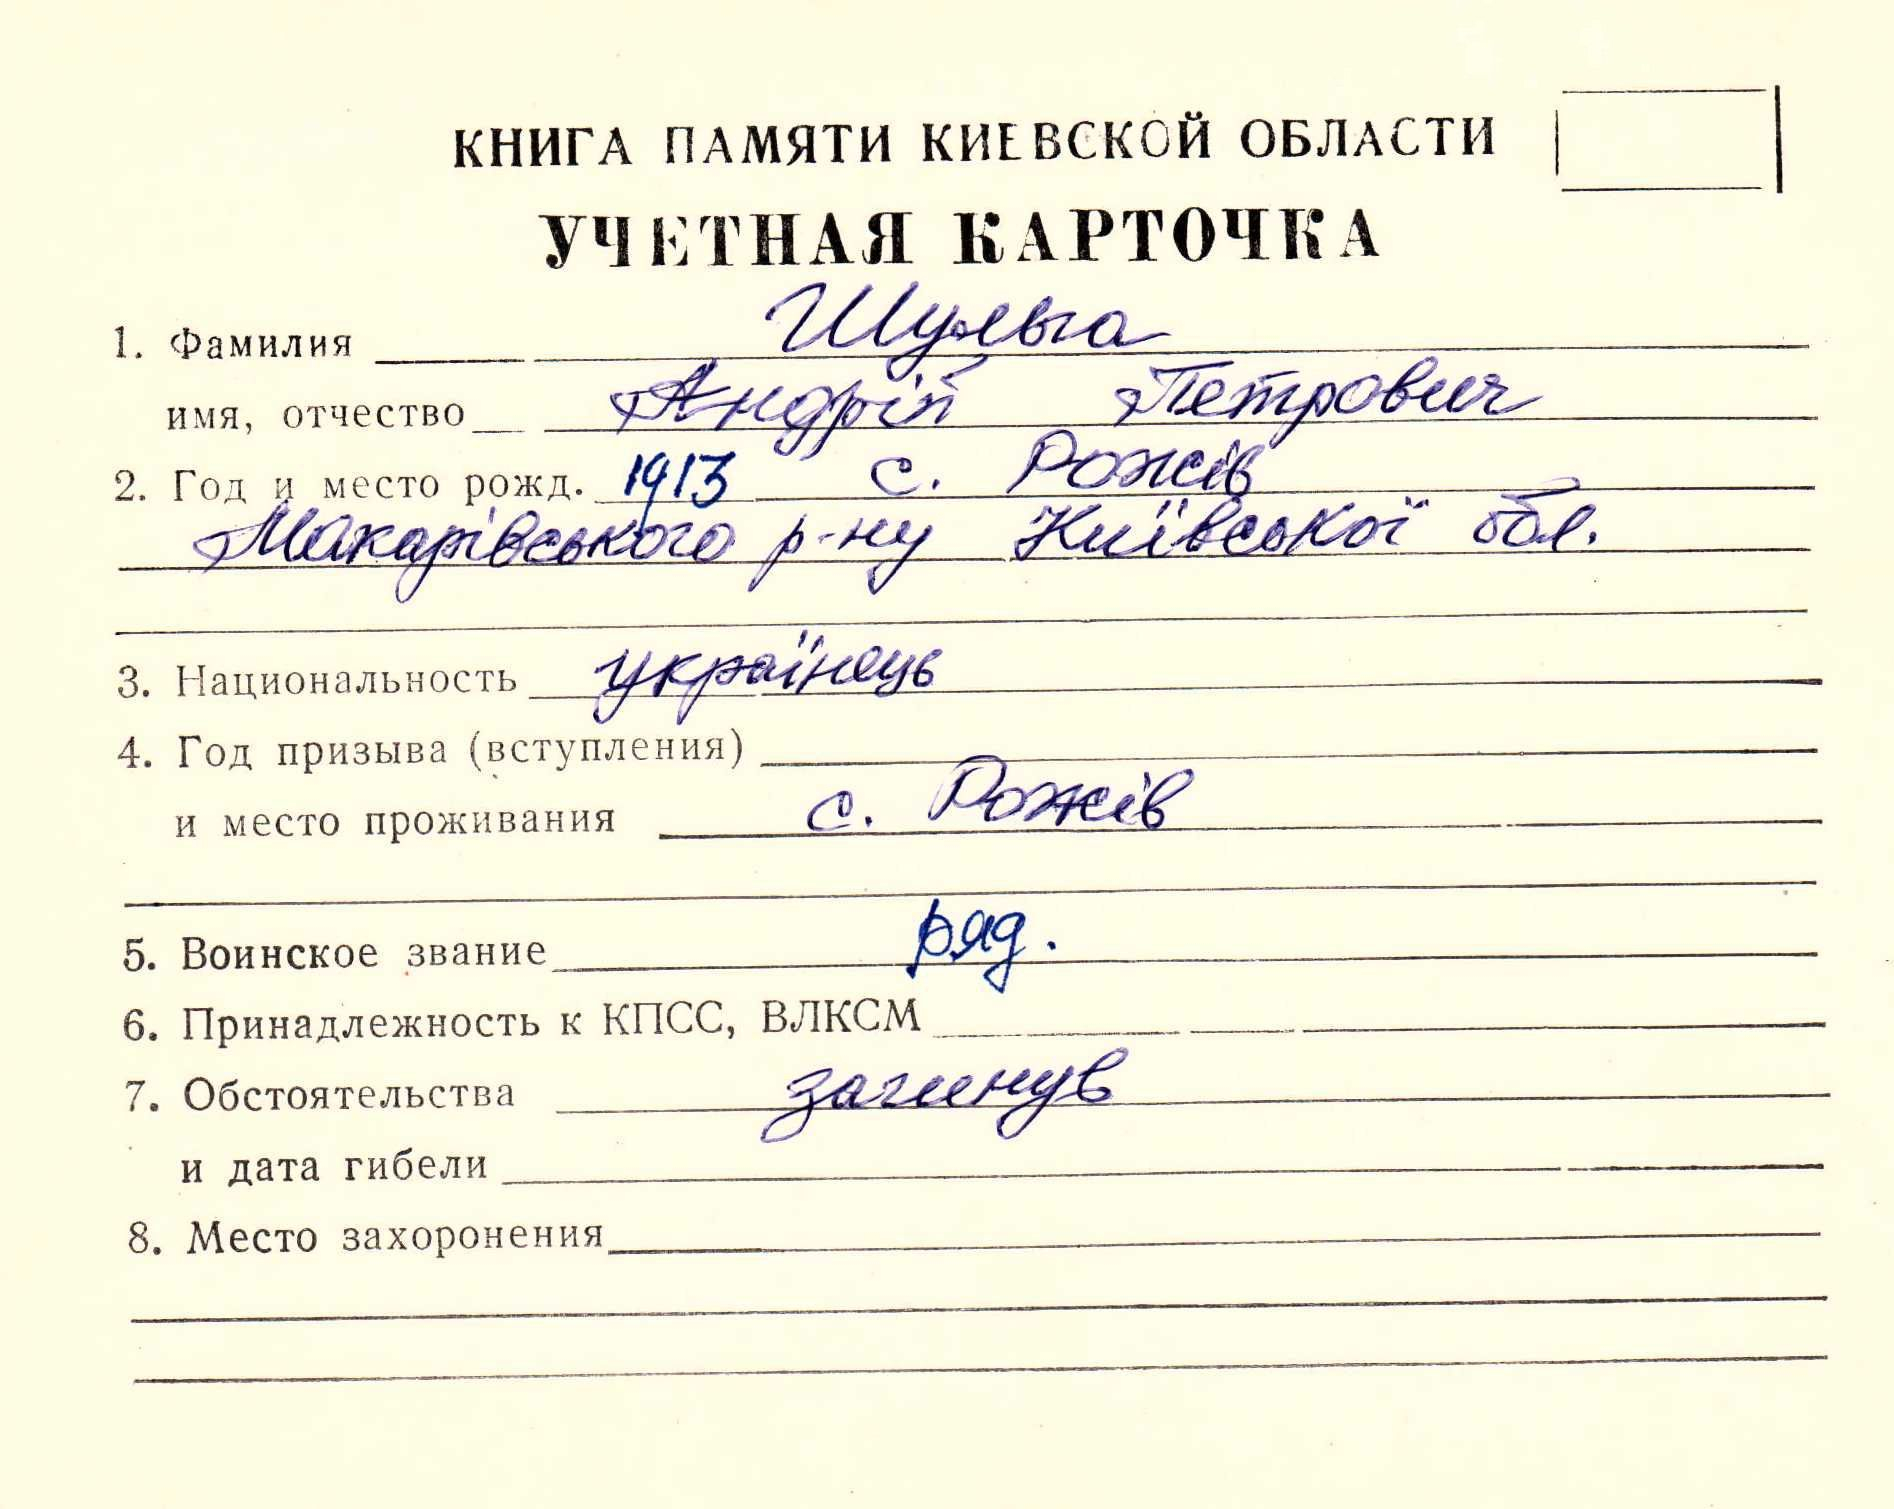 КНИГА ПАМЯТИ КИЕВСКОЙ ОБЛАСТИ
УЧЕТНАЯ КАРТОЧКА
1. Фамилия Шульга
имя, отчество Андрій Петрович
2. Год и место рожд. 1913 с. Рожів
Макарівського р-ну Київської обл.
3. Национальность українець
4. Год призыва (вступления)
и место проживания с. Рожів
5. Воинское звание ряд.
6. Принадлежность к КПСС, ВЛКСМ
7. Обстоятельства загинув
и дата гибели
8. Место захоронения